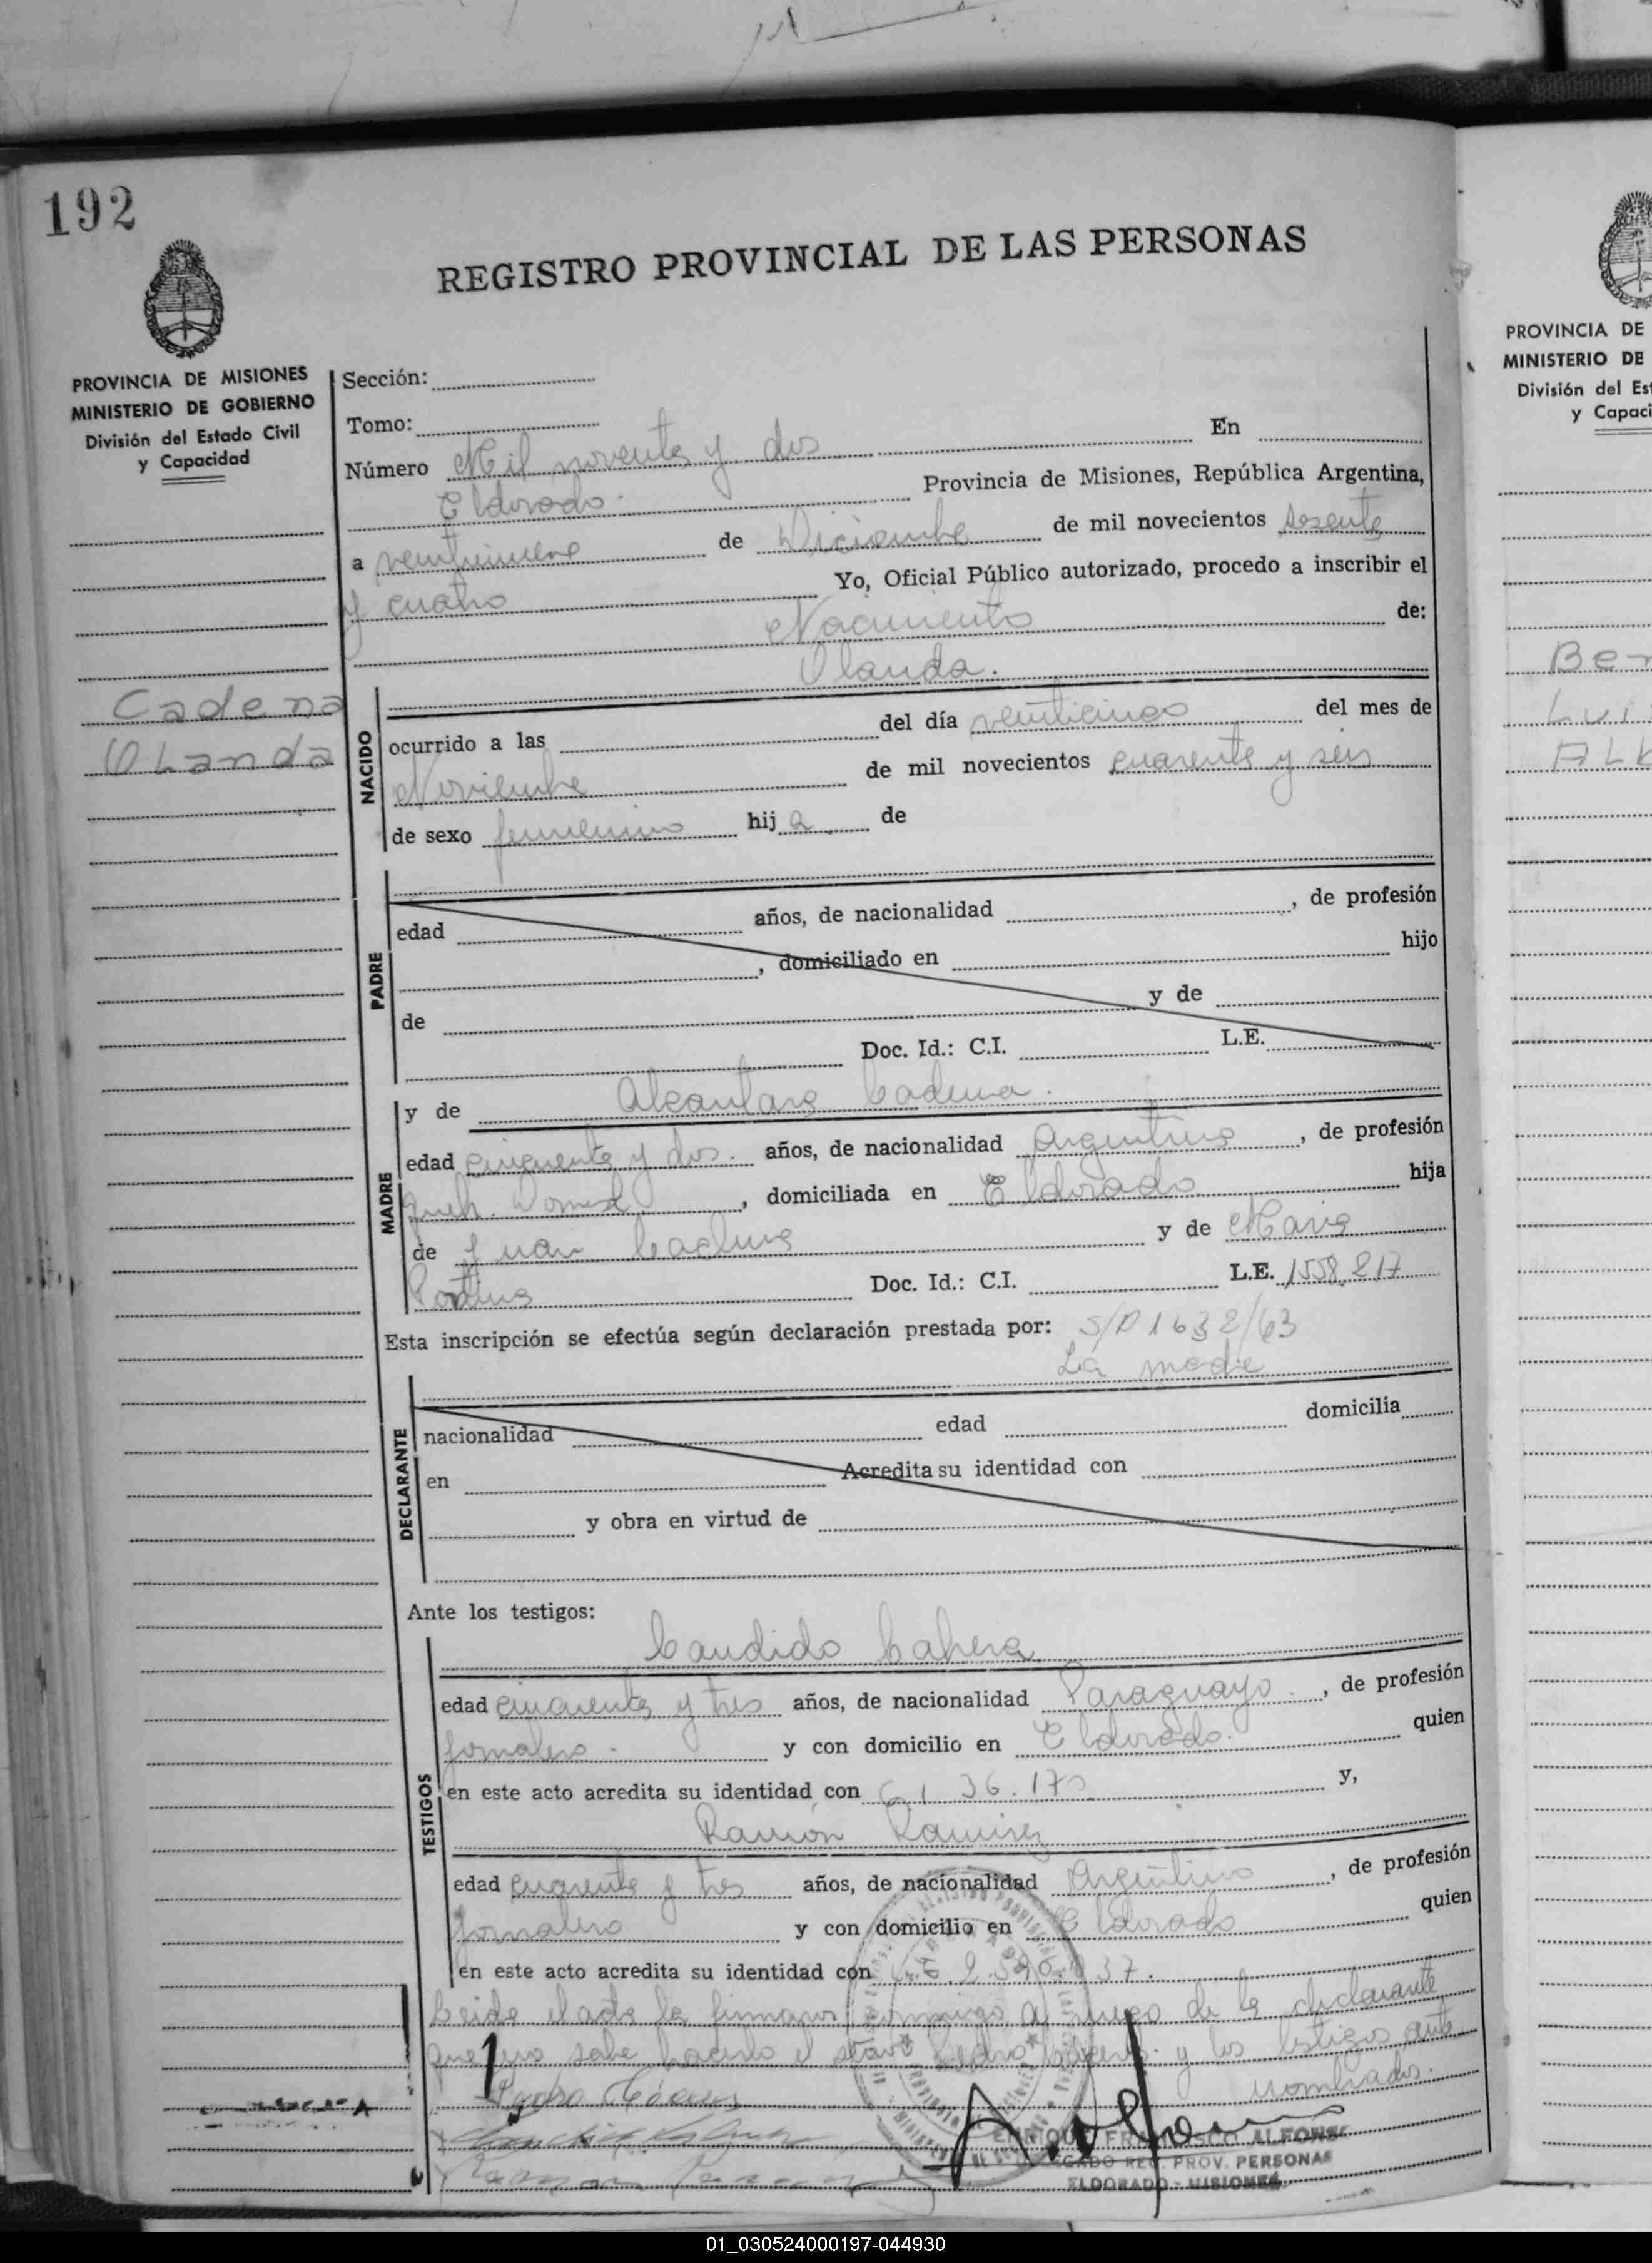 192
REGISTRO PROVINCIAL DE LAS PERSONAS
PROVINCIA DE MISIONES
MINISTERIO DE GOBIERNO
División del Estado Civil
y Capacidad
Cadena
Olanda
Sección:
Tomo:
Número Mil noventa y dos En
Eldorado. Provincia de Misiones, República Argentina,
a veintinueve de Diciembre de mil novecientos sesenta
y cuatro Yo, Oficial Público autorizado, procedo a inscribir el
Nacimiento de:
Olanda.
NACIDO
ocurrido a las del día veinticinco del mes de
Noviembre de mil novecientos cuarenta y seis
de sexo femenino hij a de
PADRE
edad años, de nacionalidad , de profesión
, domiciliado en hijo
de y de
Doc. Id.: C.I. L.E.
MADRE
y de Alcantara Cadena.
edad cincuenta y dos. años, de nacionalidad Argentina, de profesión
queh. Domest, domiciliada en Eldorado hija
de Juan Cadena y de Maria
Doc. Id.: C.I. L.E. 1558.217
Esta inscripción se efectúa según declaración prestada por: S/D 1632/63
La madre
DECLARANTE
nacionalidad edad domicilia
en Acredita su identidad con
y obra en virtud de
Ante los testigos:
TESTIGOS
Candido Cabrera
edad cincuenta y tres años, de nacionalidad Paraguayo., de profesión
jornalero - y con domicilio en Eldorado. quien
en este acto acredita su identidad con C.I 36.170 y,
Ramón Ramirez
edad cuarenta y tres años, de nacionalidad Argentino, de profesión
jornalero y con domicilio en Eldorado quien
en este acto acredita su identidad con
Leida el acta la firman conmigo a ruego de la declarante
que no sabe hacerlo el señor Pedro y los testigos ante
nombrados.
Pedro
ENRIQUE FRANCISCO ALFONSO
REG. PROV. PERSONAS
ELDORADO - MISIONES
PROVINCIA DE
MINISTERIO DE
División del Es
y Capaci
Ber
Lui
01_030524000197-044930